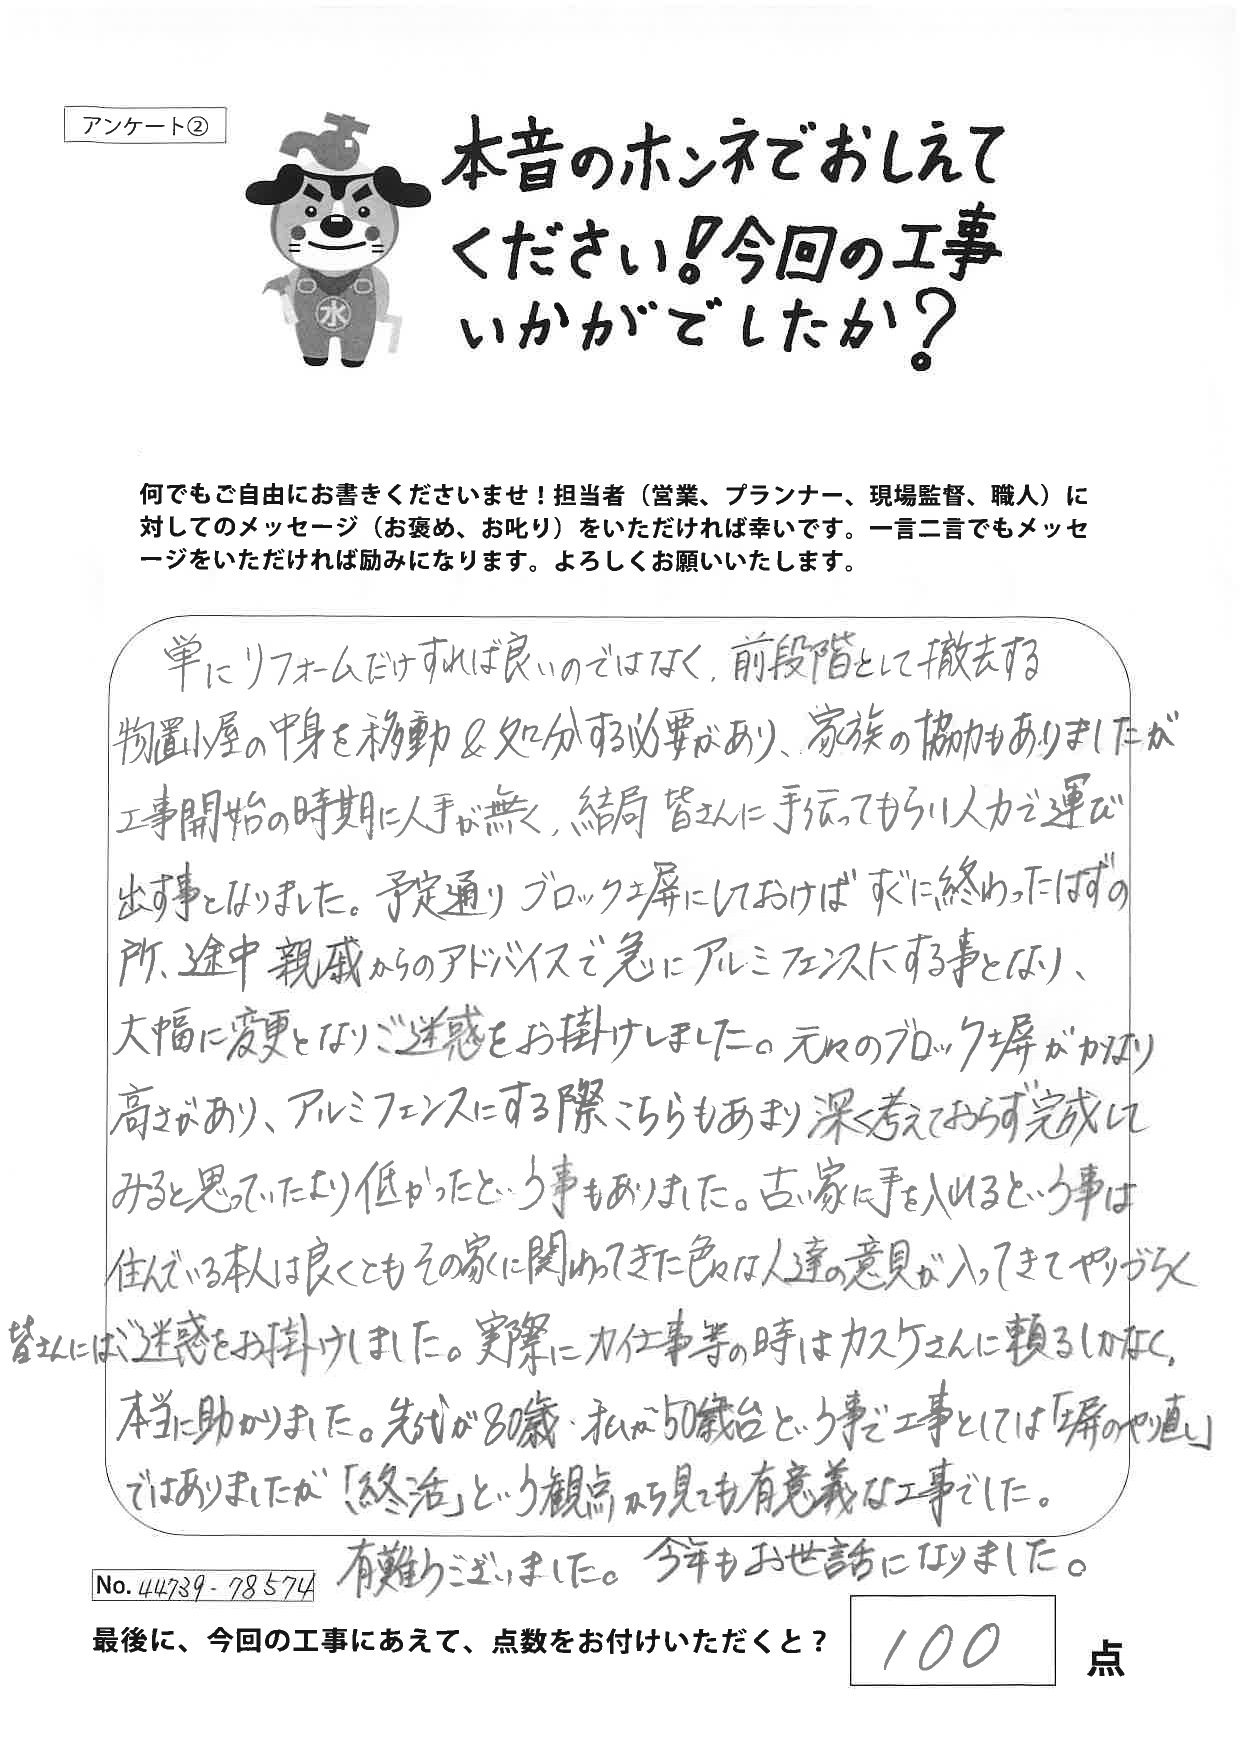 アンケート②
本音のホンネでおしえて
ください!今回の工事
いかがでしたか?
水
何でもご自由にお書きくださいませ!担当者(営業、プランナー、現場監督、職人)に
対してのメッセージ(お褒め、お叱り)をいただければ幸いです。一言二言でもメッセ
ージをいただければ励みになります。よろしくお願いいたします。
単にリフォームだけすれば良いのではなく、前段階として撤去する
物置小屋の中身を移動&処分する必要があり、家族の協力もありましたが
工事開始の時期に人手が無く、結局皆さんに手伝ってもらい人力で運び
出す事となりました。予定通りブロック塀にしておけばすぐに終わったはずの
所、途中親戚からのアドバイスで急にアルミフェンスにする事となり、
大幅に変更となりご迷惑をお掛けしました。元々のブロック塀がかなり
高さがあり、アルミフェンスにする際こちらもあまり深く考えておらず完成して
みると思っていたより低かったという事もありました。古い家に手を入れるという事は
住んでいる本人は良くともその家に関わってきた色々な人達の意見が入ってきてやりづらく
皆さんにはご迷惑をお掛けしました。実際に力仕事等の時はカスケさんに頼るしかなく、
本当に助かりました。先代が80歳・私が50歳台という事で工事としては「塀のやり直し」
ではありましたが「終活」という観点から見ても有意義な工事でした。
有難うございました。今年もお世話になりました。
No. 44739-78574
最後に、今回の工事にあえて、点数をお付けいただくと?
100 点